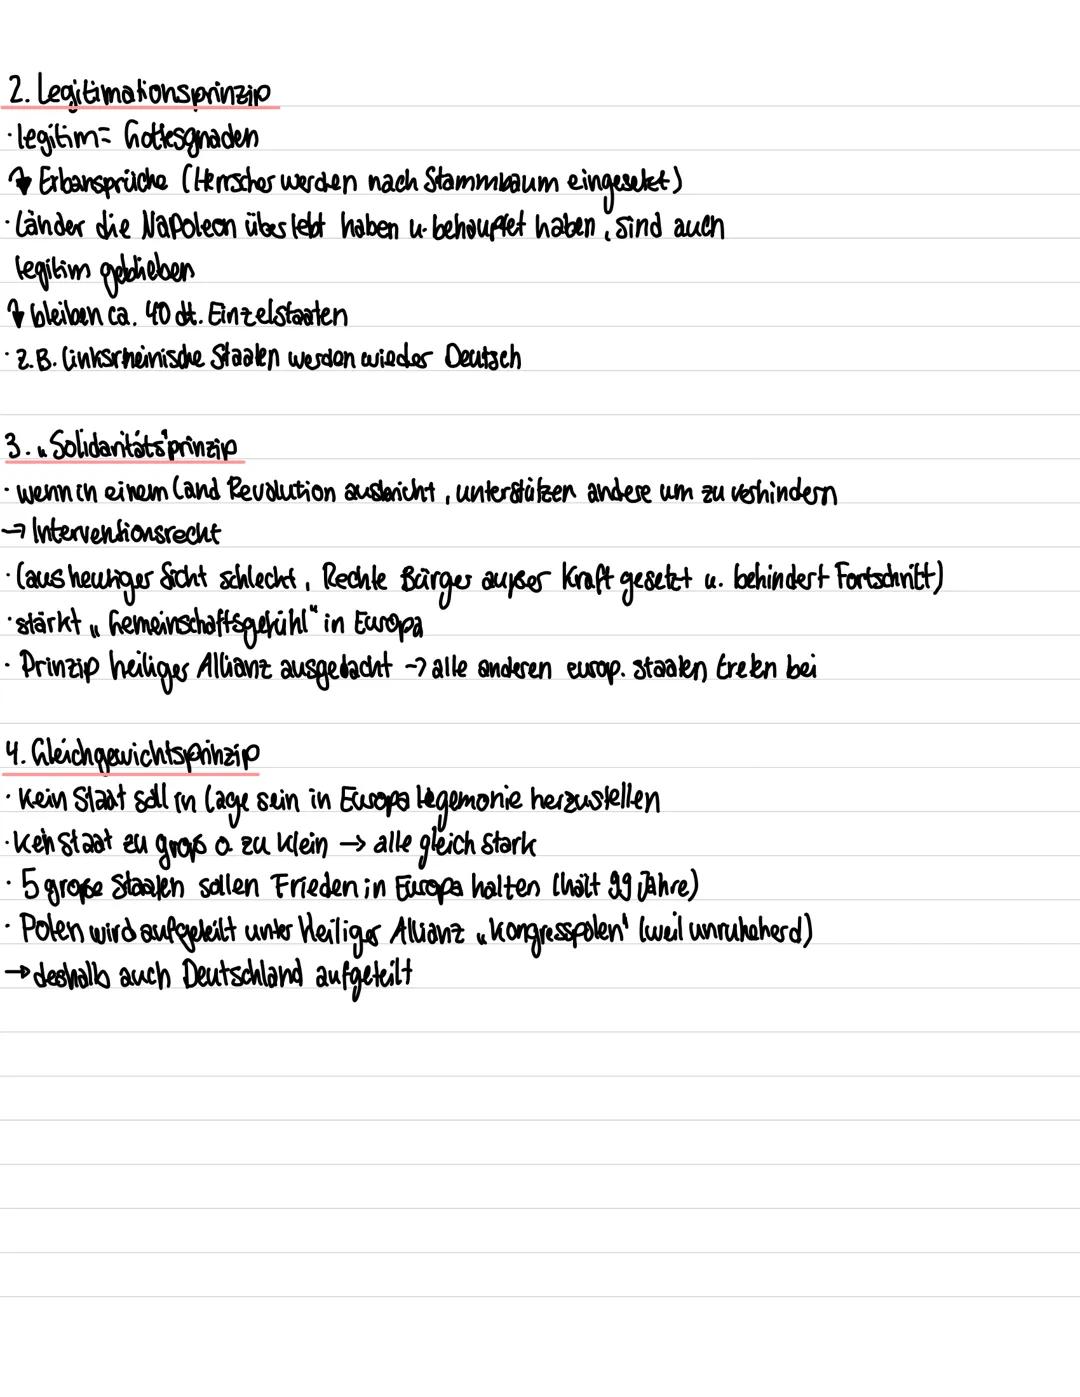 2. Legitimationsprinzip
· legitim = Gottesgnaden
↳ Erbansprüche (Herrscher werden nach Stammbaum eingesetzt)
· Länder die Napoleon überlebt haben u. behauptet haben, sind auch
legitim geblieben
↳ bleiben ca. 40 dt. Einzelstaaten
· z.B. linksrheinische Staaten werden wieder Deutsch
3. „Solidaritäts"prinzip
· wenn in einem Land Revolution ausbricht, unterstützen andere um zu verhindern
→ Interventionsrecht
· (aus heutiger Sicht schlecht, Rechte Bürger außer Kraft gesetzt u. behindert Fortschritt)
· stärkt „Gemeinschaftsgefühl" in Europa
· Prinzip heiliger Allianz ausgedacht → alle anderen europ. staaten treten bei
4. Gleichgewichtsprinzip
· Kein Staat soll in Lage sein in Europa Hegemonie herzustellen
· Kein Staat zu groß o. zu klein → alle gleich stark
· 5 große Staaten sollen Frieden in Europa halten (hält 99 Jahre)
· Polen wird aufgeteilt unter Heiliger Allianz „Kongresspolen" (weil unruheherd)
→ deshalb auch Deutschland aufgeteilt